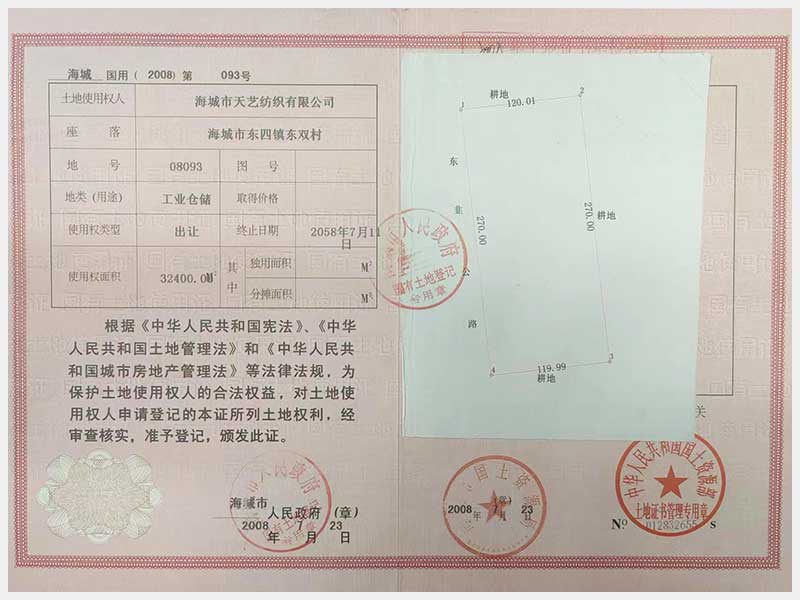 海城 国用（2008）第 093号
土地使用权人 海城市天艺纺织有限公司
座 落 海城市东四镇东双村
地 号 08093 图 号
地类（用途） 工业仓储 取得价格
使用权类型 出让 终止日期 2058年7月11日
使用权面积 32400.00 M² 其中 独用面积 M²
分摊面积 M²
根据《中华人民共和国宪法》、《中华
人民共和国土地管理法》和《中华人民共
和国城市房地产管理法》等法律法规，为
保护土地使用权人的合法权益，对土地使
用权人申请登记的本证所列土地权利，经
审查核实，准予登记，颁发此证。
海城市 人民政府（章）
2008年 7月 23日
人民政府
国有土地登记
专用章
耕地
1 120.01 2
东
韭
公
路
270.00
270.00
耕地
4 119.99 3
耕地
关
国土资源
（章）
2008年 7月 23日
中华人民共和国国土资源部
土地证书管理专用章
Nº 012832655 s